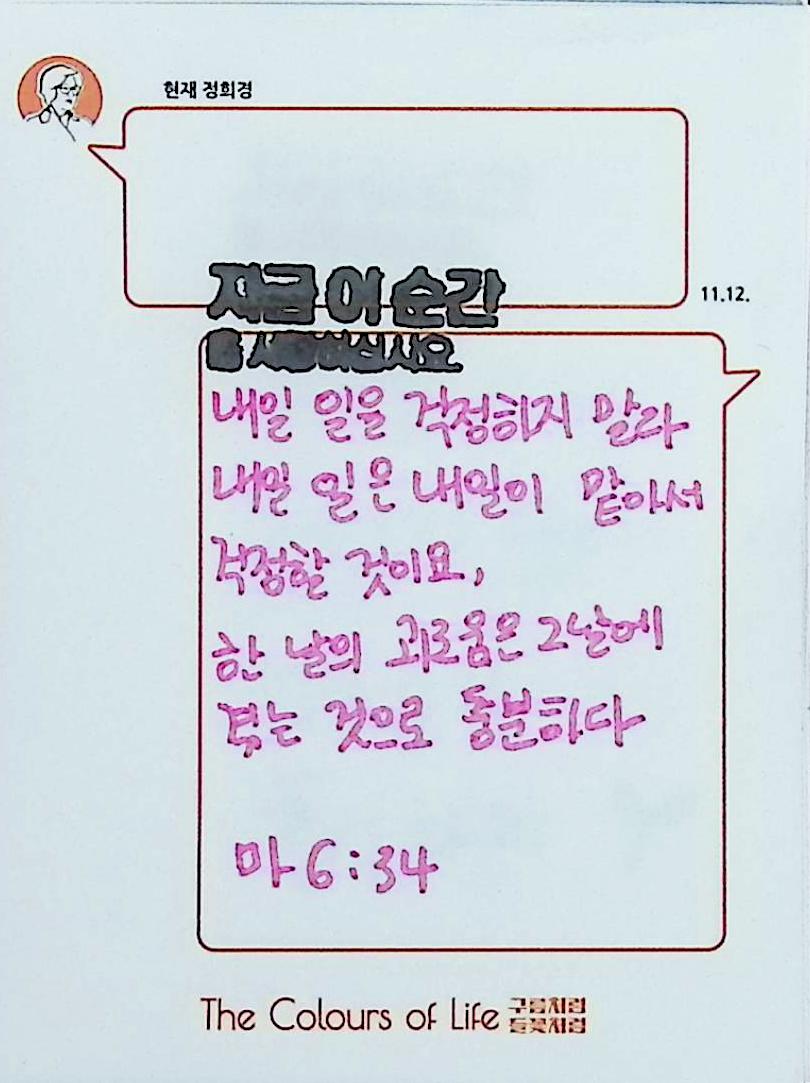 현재 정희경
지금 이 순간
11.12.
내일 일을 걱정하지 말라
내일 일은 내일이 맡아서
걱정할 것이요,
한 날의 괴로움은 그날에
겪는 것으로 충분하다
마 6:34
The Colours of Life 구름처럼
들꽃처럼